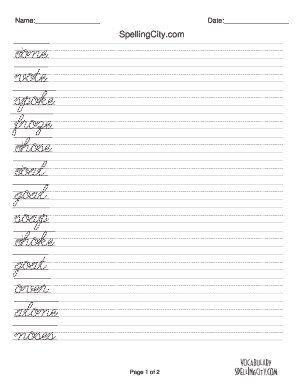 Name: Date:
SpellingCity.com
vote
spoke
froze
chose
goal
soap
choke
goat
over
alone
noses
Page 1 of 2
VOCABULARY
SPELLINGCITY.COM